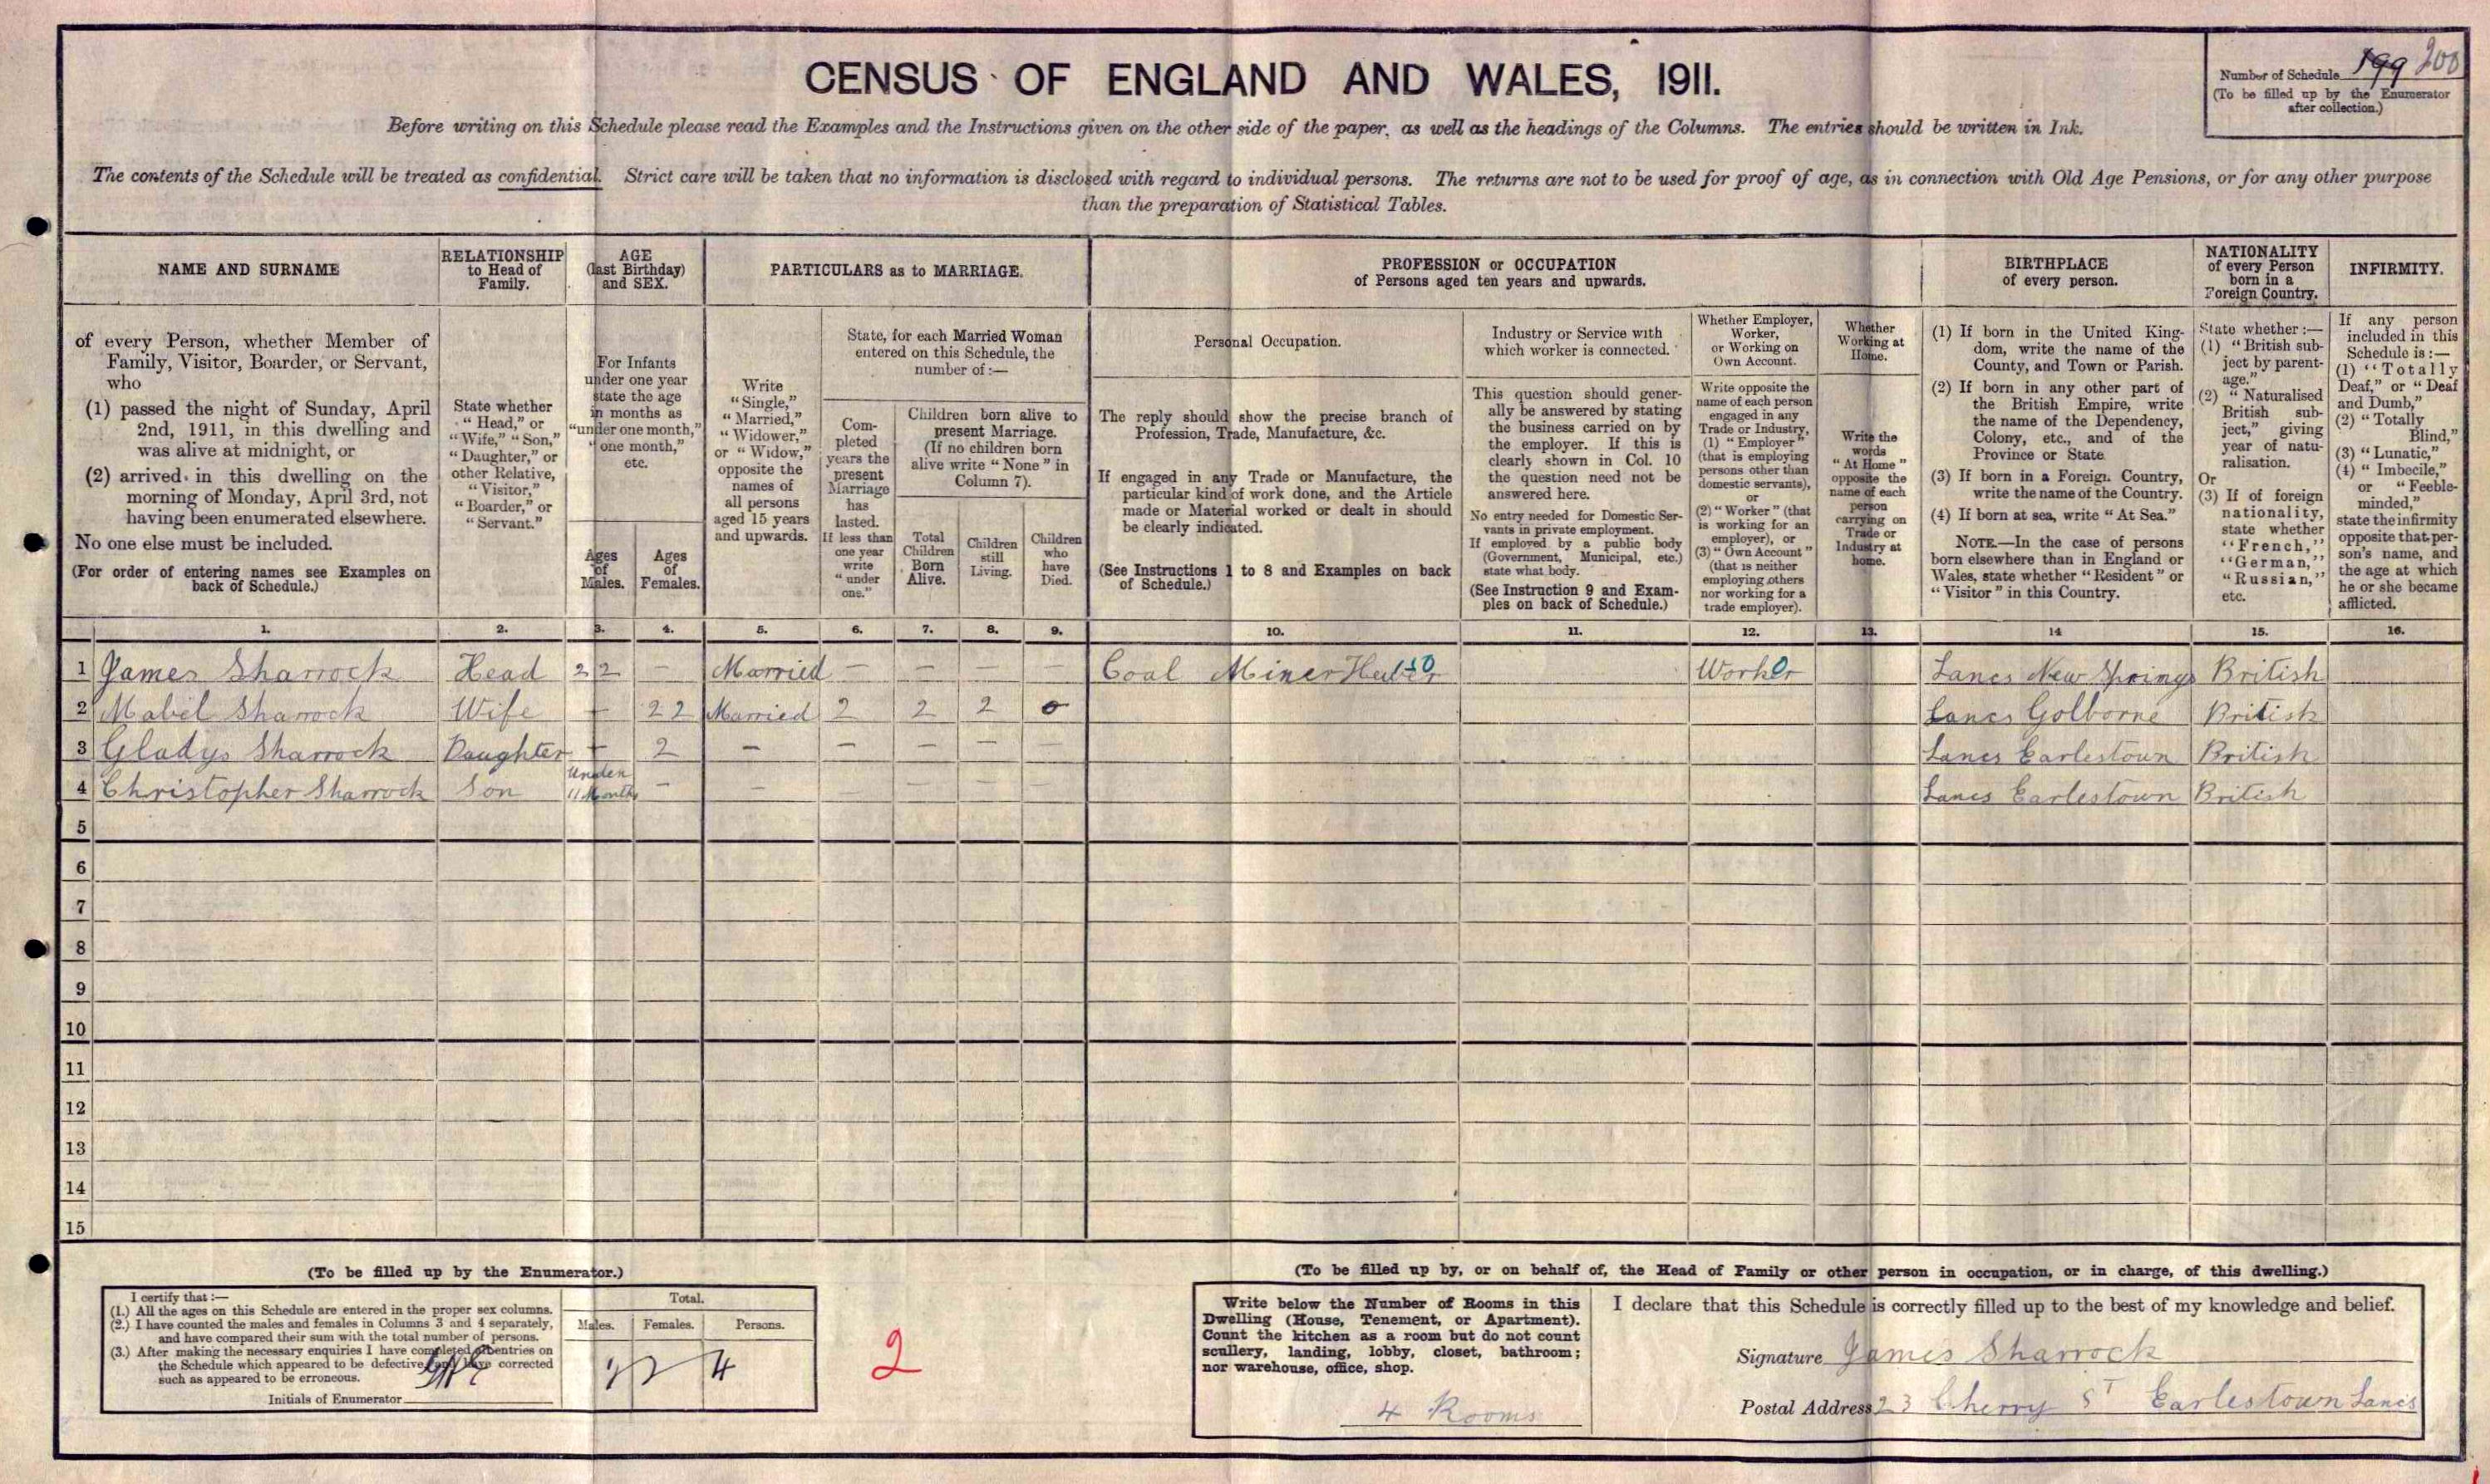 CENSUS OF ENGLAND AND WALES, 1911.
Number of Schedule 199 200
(To be filled up by the Enumerator
after collection.)
Before writing on this Schedule please read the Examples and the Instructions given on the other side of the paper, as well as the headings of the Columns. The entries should be written in Ink.
The contents of the Schedule will be treated as confidential. Strict care will be taken that no information is disclosed with regard to individual persons. The returns are not to be used for proof of age, as in connection with Old Age Pensions, or for any other purpose
than the preparation of Statistical Tables.
NAME AND SURNAME
RELATIONSHIP
to Head of
Family.
AGE
(last Birthday)
and SEX.
PARTICULARS as to MARRIAGE.
PROFESSION or OCCUPATION
of Persons aged ten years and upwards.
BIRTHPLACE
of every person.
NATIONALITY
of every Person
born in a
Foreign Country.
INFIRMITY.
of every Person, whether Member of
Family, Visitor, Boarder, or Servant,
who
(1) passed the night of Sunday, April
2nd, 1911, in this dwelling and
was alive at midnight, or
(2) arrived in this dwelling on the
morning of Monday, April 3rd, not
having been enumerated elsewhere.
No one else must be included.
(For order of entering names see Examples on
back of Schedule.)
State whether
"Head," or
"Wife," "Son,"
"Daughter," or
other Relative,
"Visitor,"
"Boarder," or
"Servant."
For Infants
under one year
state the age
in months as
"under one month,"
"one month,"
etc.
Ages
of
Males.
Ages
of
Females.
Write
"Single,"
"Married,"
"Widower,"
or "Widow,"
opposite the
names of
all persons
aged 15 years
and upwards.
State, for each Married Woman
entered on this Schedule, the
number of:—
Com-
pleted
years the
present
Marriage
has
lasted.
If less than
one year
write
"under
one."
Children born alive to
present Marriage.
(If no children born
alive write "None" in
Column 7).
Total
Children
Born
Alive.
Children
still
Living.
Children
who
have
Died.
Personal Occupation.
The reply should show the precise branch of
Profession, Trade, Manufacture, &c.
If engaged in any Trade or Manufacture, the
particular kind of work done, and the Article
made or Material worked or dealt in should
be clearly indicated.
(See Instructions 1 to 8 and Examples on back
of Schedule.)
Industry or Service with
which worker is connected.
This question should gener-
ally be answered by stating
the business carried on by
the employer. If this is
clearly shown in Col. 10
the question need not be
answered here.
No entry needed for Domestic Ser-
vants in private employment.
If employed by a public body
(Government, Municipal, etc.)
state what body.
(See Instruction 9 and Exam-
ples on back of Schedule.)
Whether Employer,
Worker,
or Working on
Own Account.
Write opposite the
name of each person
engaged in any
Trade or Industry,
(1) "Employer"
(that is employing
persons other than
domestic servants),
or
(2) "Worker" (that
is working for an
employer), or
(3) "Own Account"
(that is neither
employing others
nor working for a
trade employer).
Whether
Working at
Home.
Write the
words
"At Home"
opposite the
name of each
person
carrying on
Trade or
Industry at
home.
(1) If born in the United King-
dom, write the name of the
County, and Town or Parish.
(2) If born in any other part of
the British Empire, write
the name of the Dependency,
Colony, etc., and of the
Province or State.
(3) If born in a Foreign Country,
write the name of the Country.
(4) If born at sea, write "At Sea."
NOTE.—In the case of persons
born elsewhere than in England or
Wales, state whether "Resident" or
"Visitor" in this Country.
State whether:—
(1) "British sub-
ject by parent-
age."
(2) "Naturalised
British sub-
ject," giving
year of natu-
ralisation.
Or
(3) If of foreign
nationality,
state whether
"French,"
"German,"
"Russian,"
etc.
If any person
included in this
Schedule is:—
(1) "Totally
Deaf," or "Deaf
and Dumb,"
(2) "Totally
Blind,"
(3) "Lunatic,"
(4) "Imbecile,"
or "Feeble-
minded,"
state the infirmity
opposite that per-
son's name, and
the age at which
he or she became
afflicted.
1. 2. 3. 4. 5. 6. 7. 8. 9. 10. 11. 12. 13. 14 15. 16.
1 James Sharrock Head 22 – Married – – – – Coal Miner Worker Lancs New Springs British
2 Mabel Sharrock Wife – 22 Married 2 2 2 0 Lancs Golborne British
3 Gladys Sharrock Daughter – 2 – – – – – Lancs Earlestown British
4 Christopher Sharrock Son Under 11 Months – – – – – – Lancs Earlestown British
5
6
7
8
9
10
11
12
13
14
15
(To be filled up by the Enumerator.)
I certify that:—
(1.) All the ages on this Schedule are entered in the proper sex columns.
(2.) I have counted the males and females in Columns 3 and 4 separately,
and have compared their sum with the total number of persons.
(3.) After making the necessary enquiries I have completed all entries on
the Schedule which appeared to be defective, and have corrected
such as appeared to be erroneous.
Initials of Enumerator
Total.
Males. Females. Persons.
2 2 4
2
(To be filled up by, or on behalf of, the Head of Family or other person in occupation, or in charge, of this dwelling.)
Write below the Number of Rooms in this
Dwelling (House, Tenement, or Apartment).
Count the kitchen as a room but do not count
scullery, landing, lobby, closet, bathroom;
nor warehouse, office, shop.
4 Rooms
I declare that this Schedule is correctly filled up to the best of my knowledge and belief.
Signature James Sharrock
Postal Address 23 Cherry St Earlestown Lancs